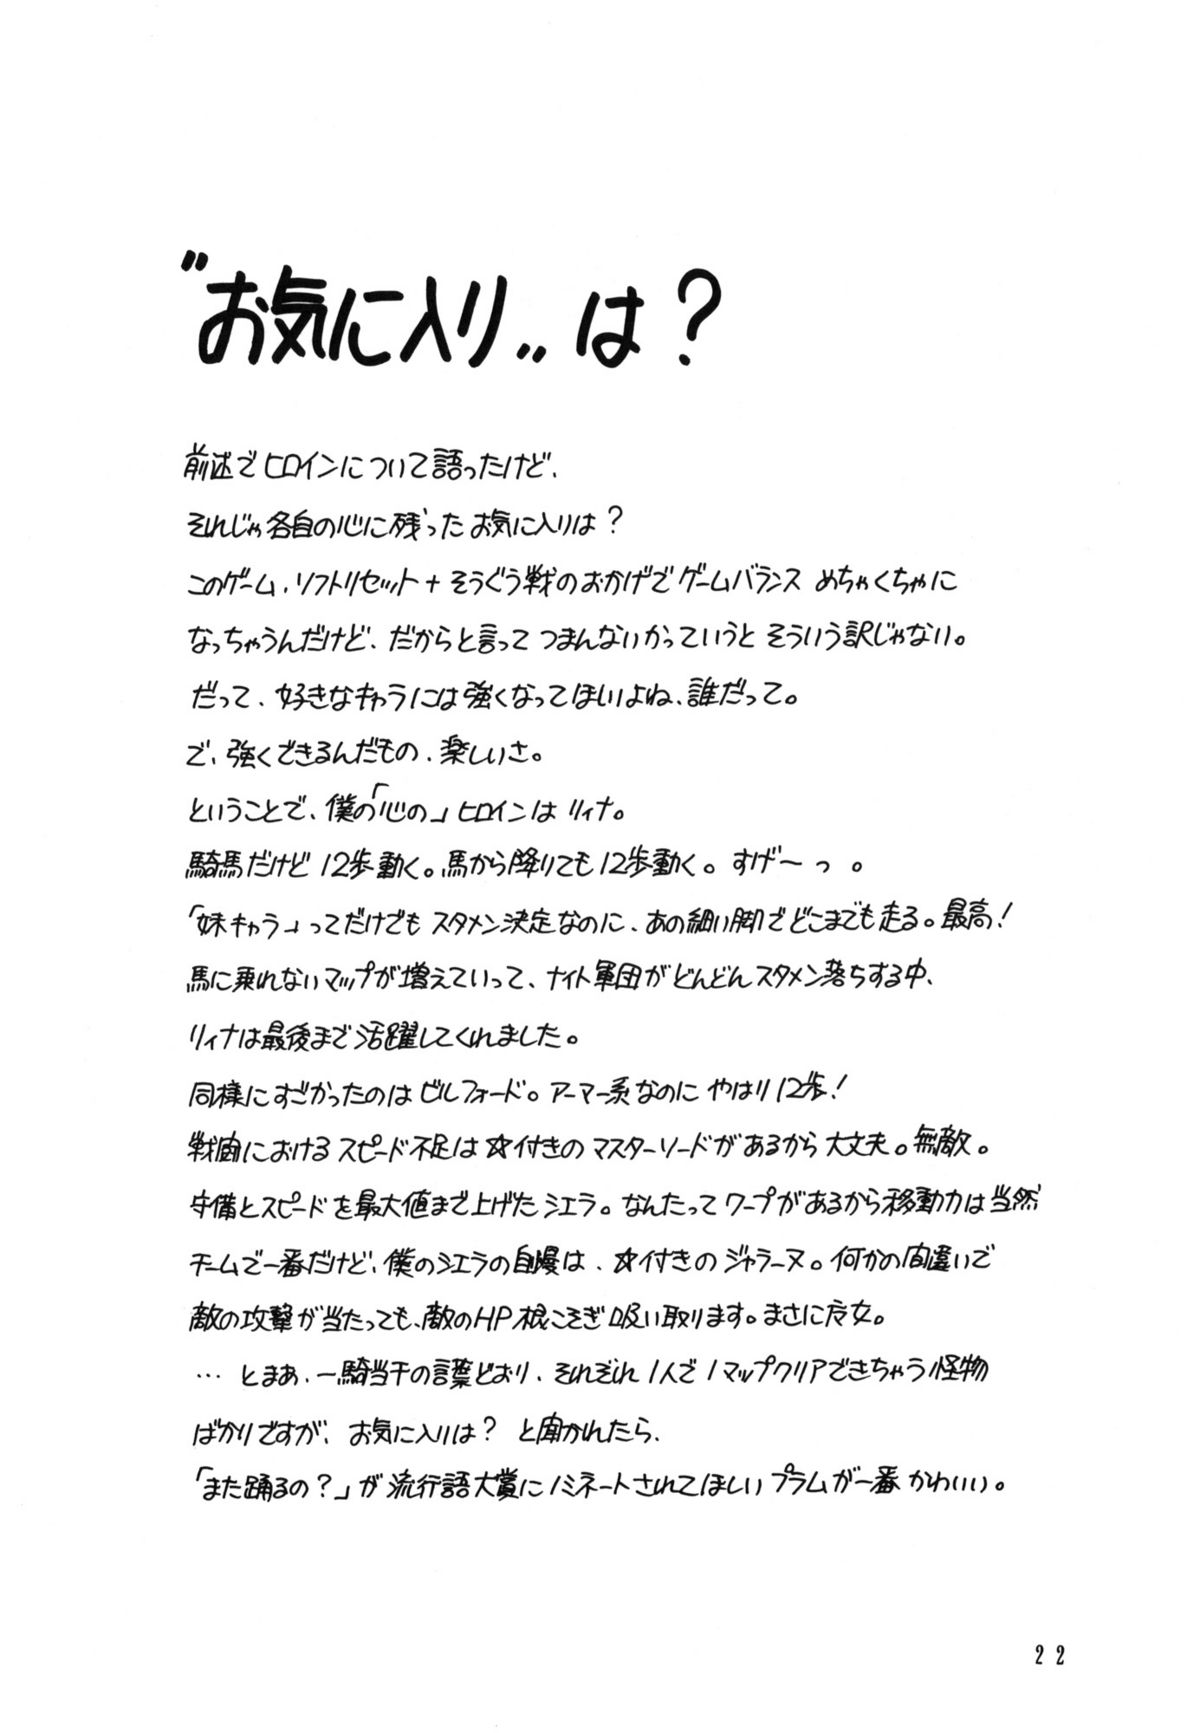 〝お気に入り〟は？
前述でヒロインについて語ったけど、
それじゃ各自の心に残ったお気に入りは？
このゲーム、ソフトリセット＋そうぐう戦のおかげでゲームバランス めちゃくちゃに
なっちゃうんだけど、だからと言って つまんないかっていうと そういう訳じゃない。
だって、好きなキャラには強くなってほしいよね、誰だって。
で、強くできるんだもの、楽しいさ。
ということで、僕の「心の」ヒロインは リィナ。
騎馬だけど 12歩動く。馬から降りても12歩動く。すげ〜っ。
「妹キャラ」ってだけでも スタメン決定なのに、あの細い脚でどこまでも走る。最高！
馬に乗れないマップが増えていって、ナイト軍団がどんどんスタメン落ちする中、
リィナは最後まで活躍してくれました。
同様にすごかったのはビルフォード。アーマー系なのに やはり12歩！
戦闘における スピード不足は☆付きのマスターソードがあるから大丈夫。無敵。
守備とスピードを最大値まで上げたシエラ。なんたってワープがあるから移動力は当然
チームで一番だけど、僕のシエラの自慢は、☆付きのジャラーヌ。何かの間違いで
敵の攻撃が当たっても、敵のHP根こそぎ吸い取ります。まさに魔女。
… とまあ、一騎当千の言葉どおり、それぞれ1人で1マップクリアできちゃう怪物
ばかりですが、お気に入りは？ と聞かれたら、
「また踊るの？」が流行語大賞にノミネートされてほしいプラムが一番かわいい。
22